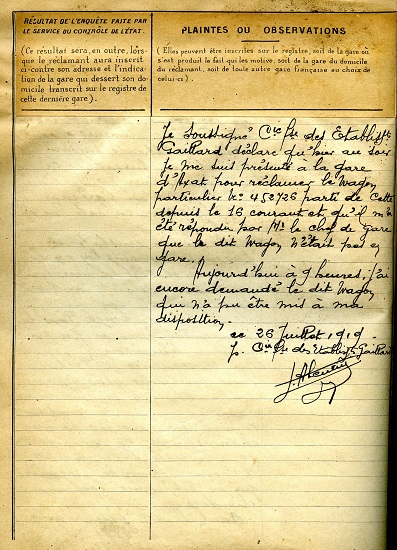 RÉSULTAT DE L'ENQUÊTE FAITE PAR
LE SERVICE DU CONTRÔLE DE L'ÉTAT.
(Ce résultat sera, en outre, lors-
que le réclamant aura inscrit
ci-contre son adresse et l'indica-
tion de la gare qui dessert son do-
micile transcrit sur le registre de
cette dernière gare).
PLAINTES OU OBSERVATIONS
(Elles peuvent être inscrites sur le registre, soit de la gare où
s'est produit le fait qui les motive, soit de la gare du domicile
du réclamant, soit de toute autre gare française au choix de
celui-ci).
Je soussigné Cie Fse des Etablissts
Gaillard déclare qu'hier au soir
je me suis présenté à la gare
d'Axat pour réclamer le Wagon
particulier No 452726 parti de Cette
depuis le 16 courant et qu'il m'a
été répondu par Mr le chef de Gare
que le dit Wagon n'était pas en
gare.
Aujourd'hui à 9 heures, j'ai
encore demandé le dit Wagon
qui n'a pu être mis à ma
disposition.
ce 26 Juillet 1919.
p. Cie Fse des Etablisst Gaillard